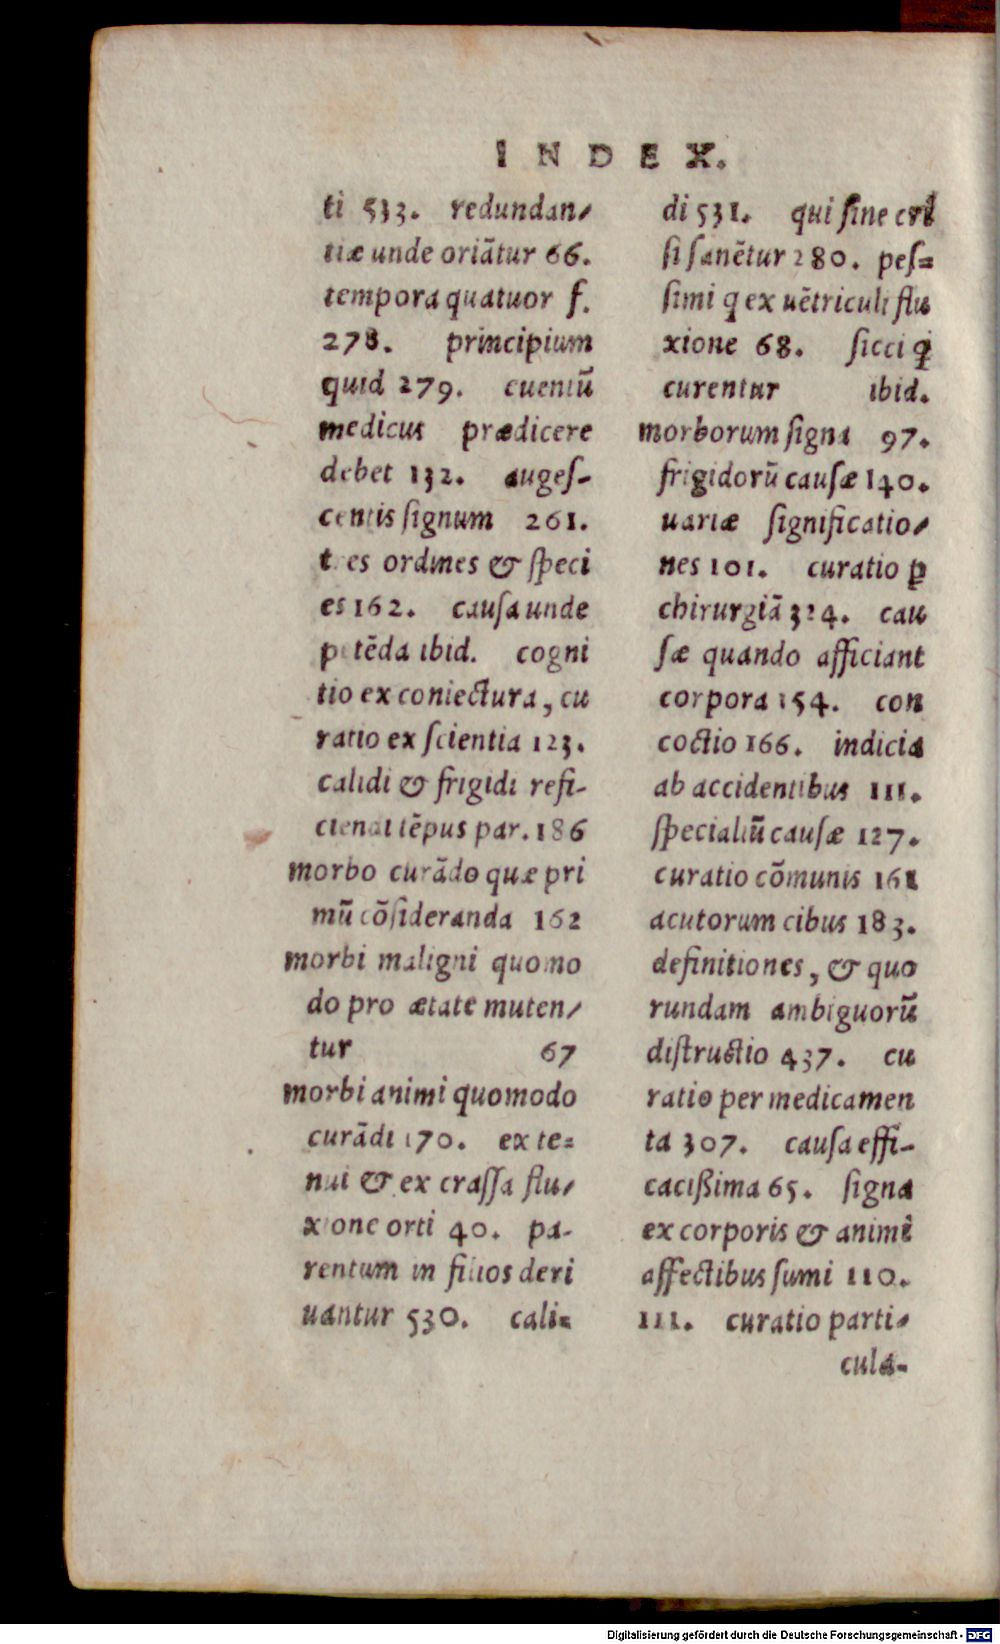 INDEX.
ti 533. redundan-
tiæ unde oriātur 66.
tempora quatuor f.
278. principium
quid 279. euentū
medicus prædicere
debet 132. augeſ-
centis ſignum 261.
tres ordines & ſpeci
es 162. cauſa unde
petēda ibid. cogni
tio ex coniectura, cu
ratio ex ſcientia 123.
calidi & frigidi refi-
ciendi tēpus par. 186
morbo curādo quæ pri
mū cōſideranda 162
morbi maligni quomo
do pro ætate muten-
tur 67
morbi animi quomodo
curādi 170. ex te=
nui & ex craſſa flu-
xione orti 40. pa-
rentum in filios deri
uantur 530. cali=
di 531. qui ſine cri
ſi ſanētur 280. peſ=
ſimi q ex uētriculi flu
xione 68. ſicci q̄
curentur ibid.
morborum ſigna 97.
frigidorū cauſæ 140.
uariæ ſignificatio-
nes 101. curatio ꝑ
chirurgiā 324. cau
ſæ quando afficiant
corpora 154. con
coctio 166. indicia
ab accidentibus 111.
ſpecialiū cauſæ 127.
curatio cōmunis 161
acutorum cibus 183.
definitiones, & quo
rundam ambiguorū
diſtructio 437. cu
ratio per medicamen
ta 307. cauſa effi-
cacißima 65. ſigna
ex corporis & animi
affectibus ſumi 110.
111. curatio parti-
cula-
Digitalisierung gefördert durch die Deutsche Forschungsgemeinschaft - DFG